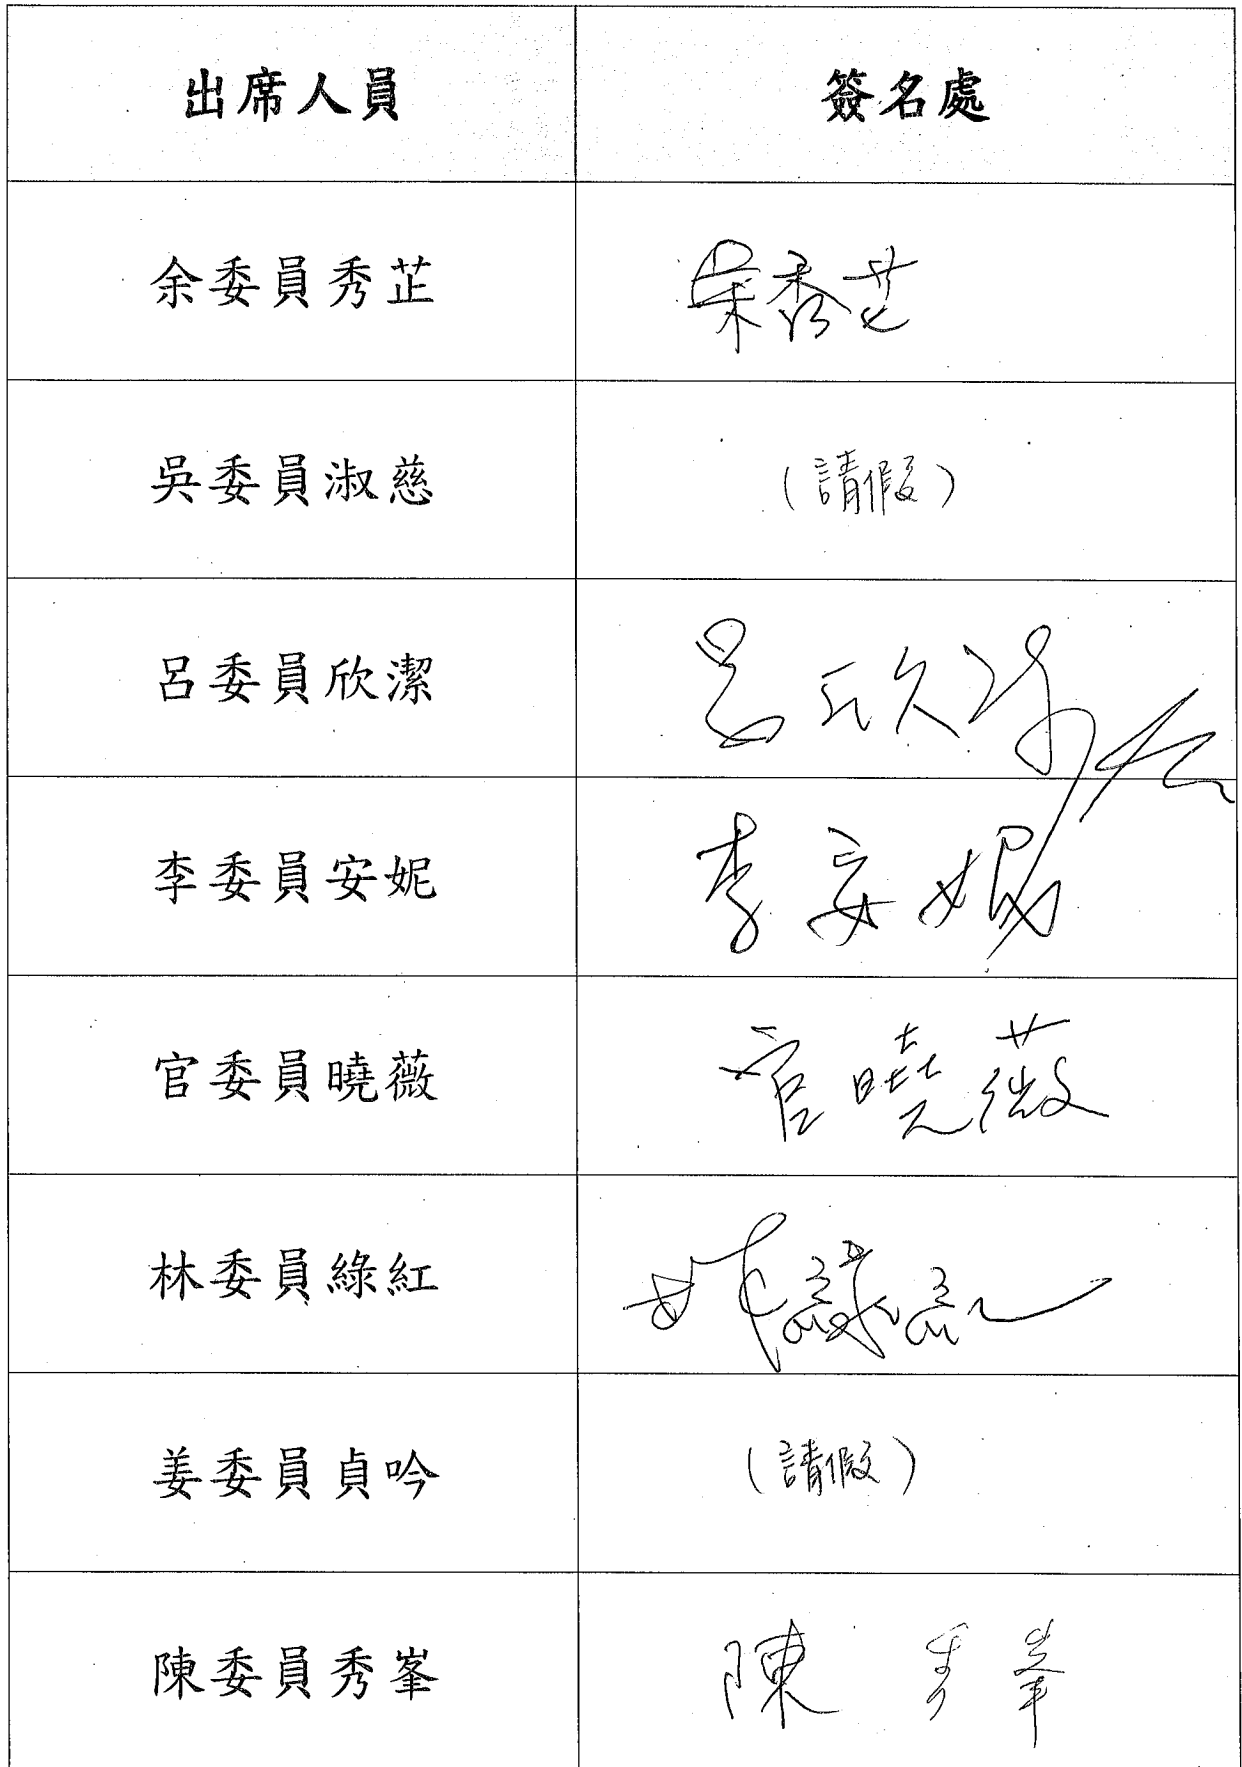 出席人員 簽名處
余委員秀芷 余秀芷
吳委員淑慈 (請假)
呂委員欣潔 呂欣潔
李委員安妮 李安妮
官委員曉薇 官曉薇
林委員綠紅 林綠紅
姜委員貞吟 (請假)
陳委員秀峯 陳秀峯